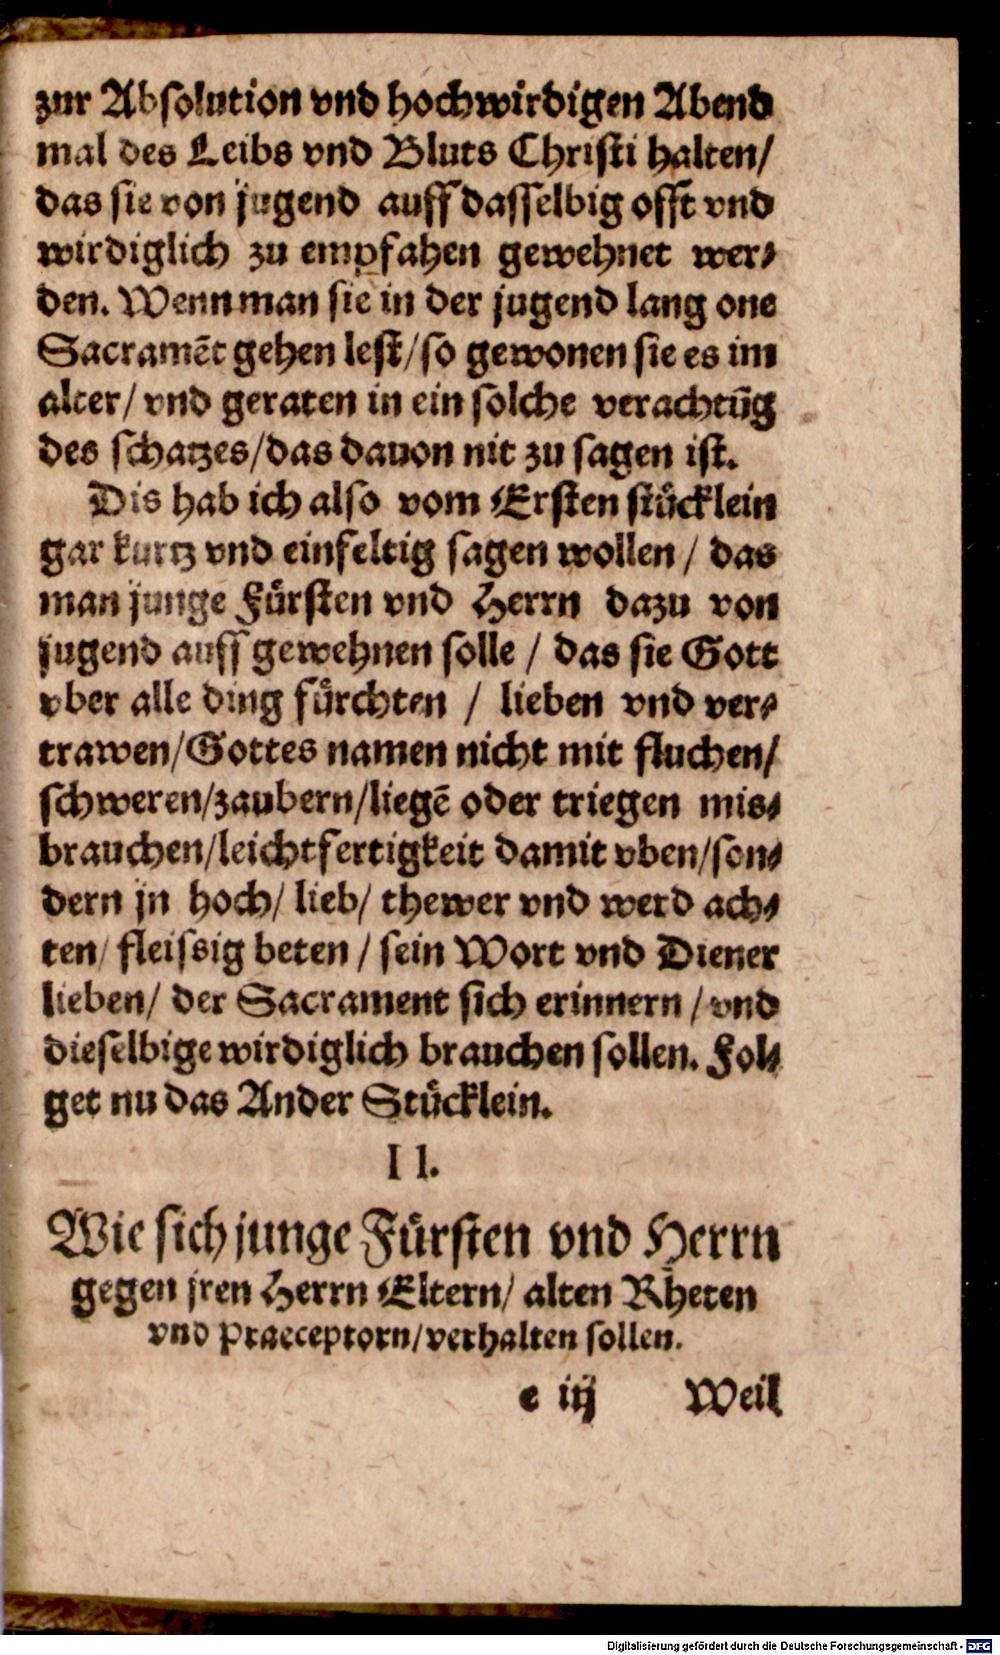 zur Absolution vnd hochwirdigen Abend
mal des Leibs vnd Bluts Christi halten/
das sie von jugend auff dasselbig offt vnd
wirdiglich zu empfahen gewehnet wer⸗
den. Wenn man sie in der jugend lang one
Sacramēt gehen lest/so gewonen sie es im
alter/ vnd geraten in ein solche verachtūg
des schatzes/das dauon nit zu sagen ist.
Dis hab ich also vom Ersten stücklein
gar kurtz vnd einfeltig sagen wollen / das
man junge Fürsten vnd Herrn dazu von
jugend auff gewehnen solle / das sie Gott
vber alle ding fürchten / lieben vnd ver⸗
trawen/Gottes namen nicht mit fluchen/
schweren/zaubern/liegē oder triegen mis⸗
brauchen/leichtfertigkeit damit vben/son⸗
dern jn hoch/ lieb/ thewer vnd werd ach⸗
ten/ fleissig beten / sein Wort vnd Diener
lieben/ der Sacrament sich erinnern / vnd
dieselbige wirdiglich brauchen sollen. Fol⸗
get nu das Ander Stücklein.
II.
Wie sich junge Fürsten vnd Herrn
gegen jren Herrn Eltern/ alten Rheten
vnd Praeceptorn/verhalten sollen.
e iij Weil
Digitalisierung gefördert durch die Deutsche Forschungsgemeinschaft - DFG